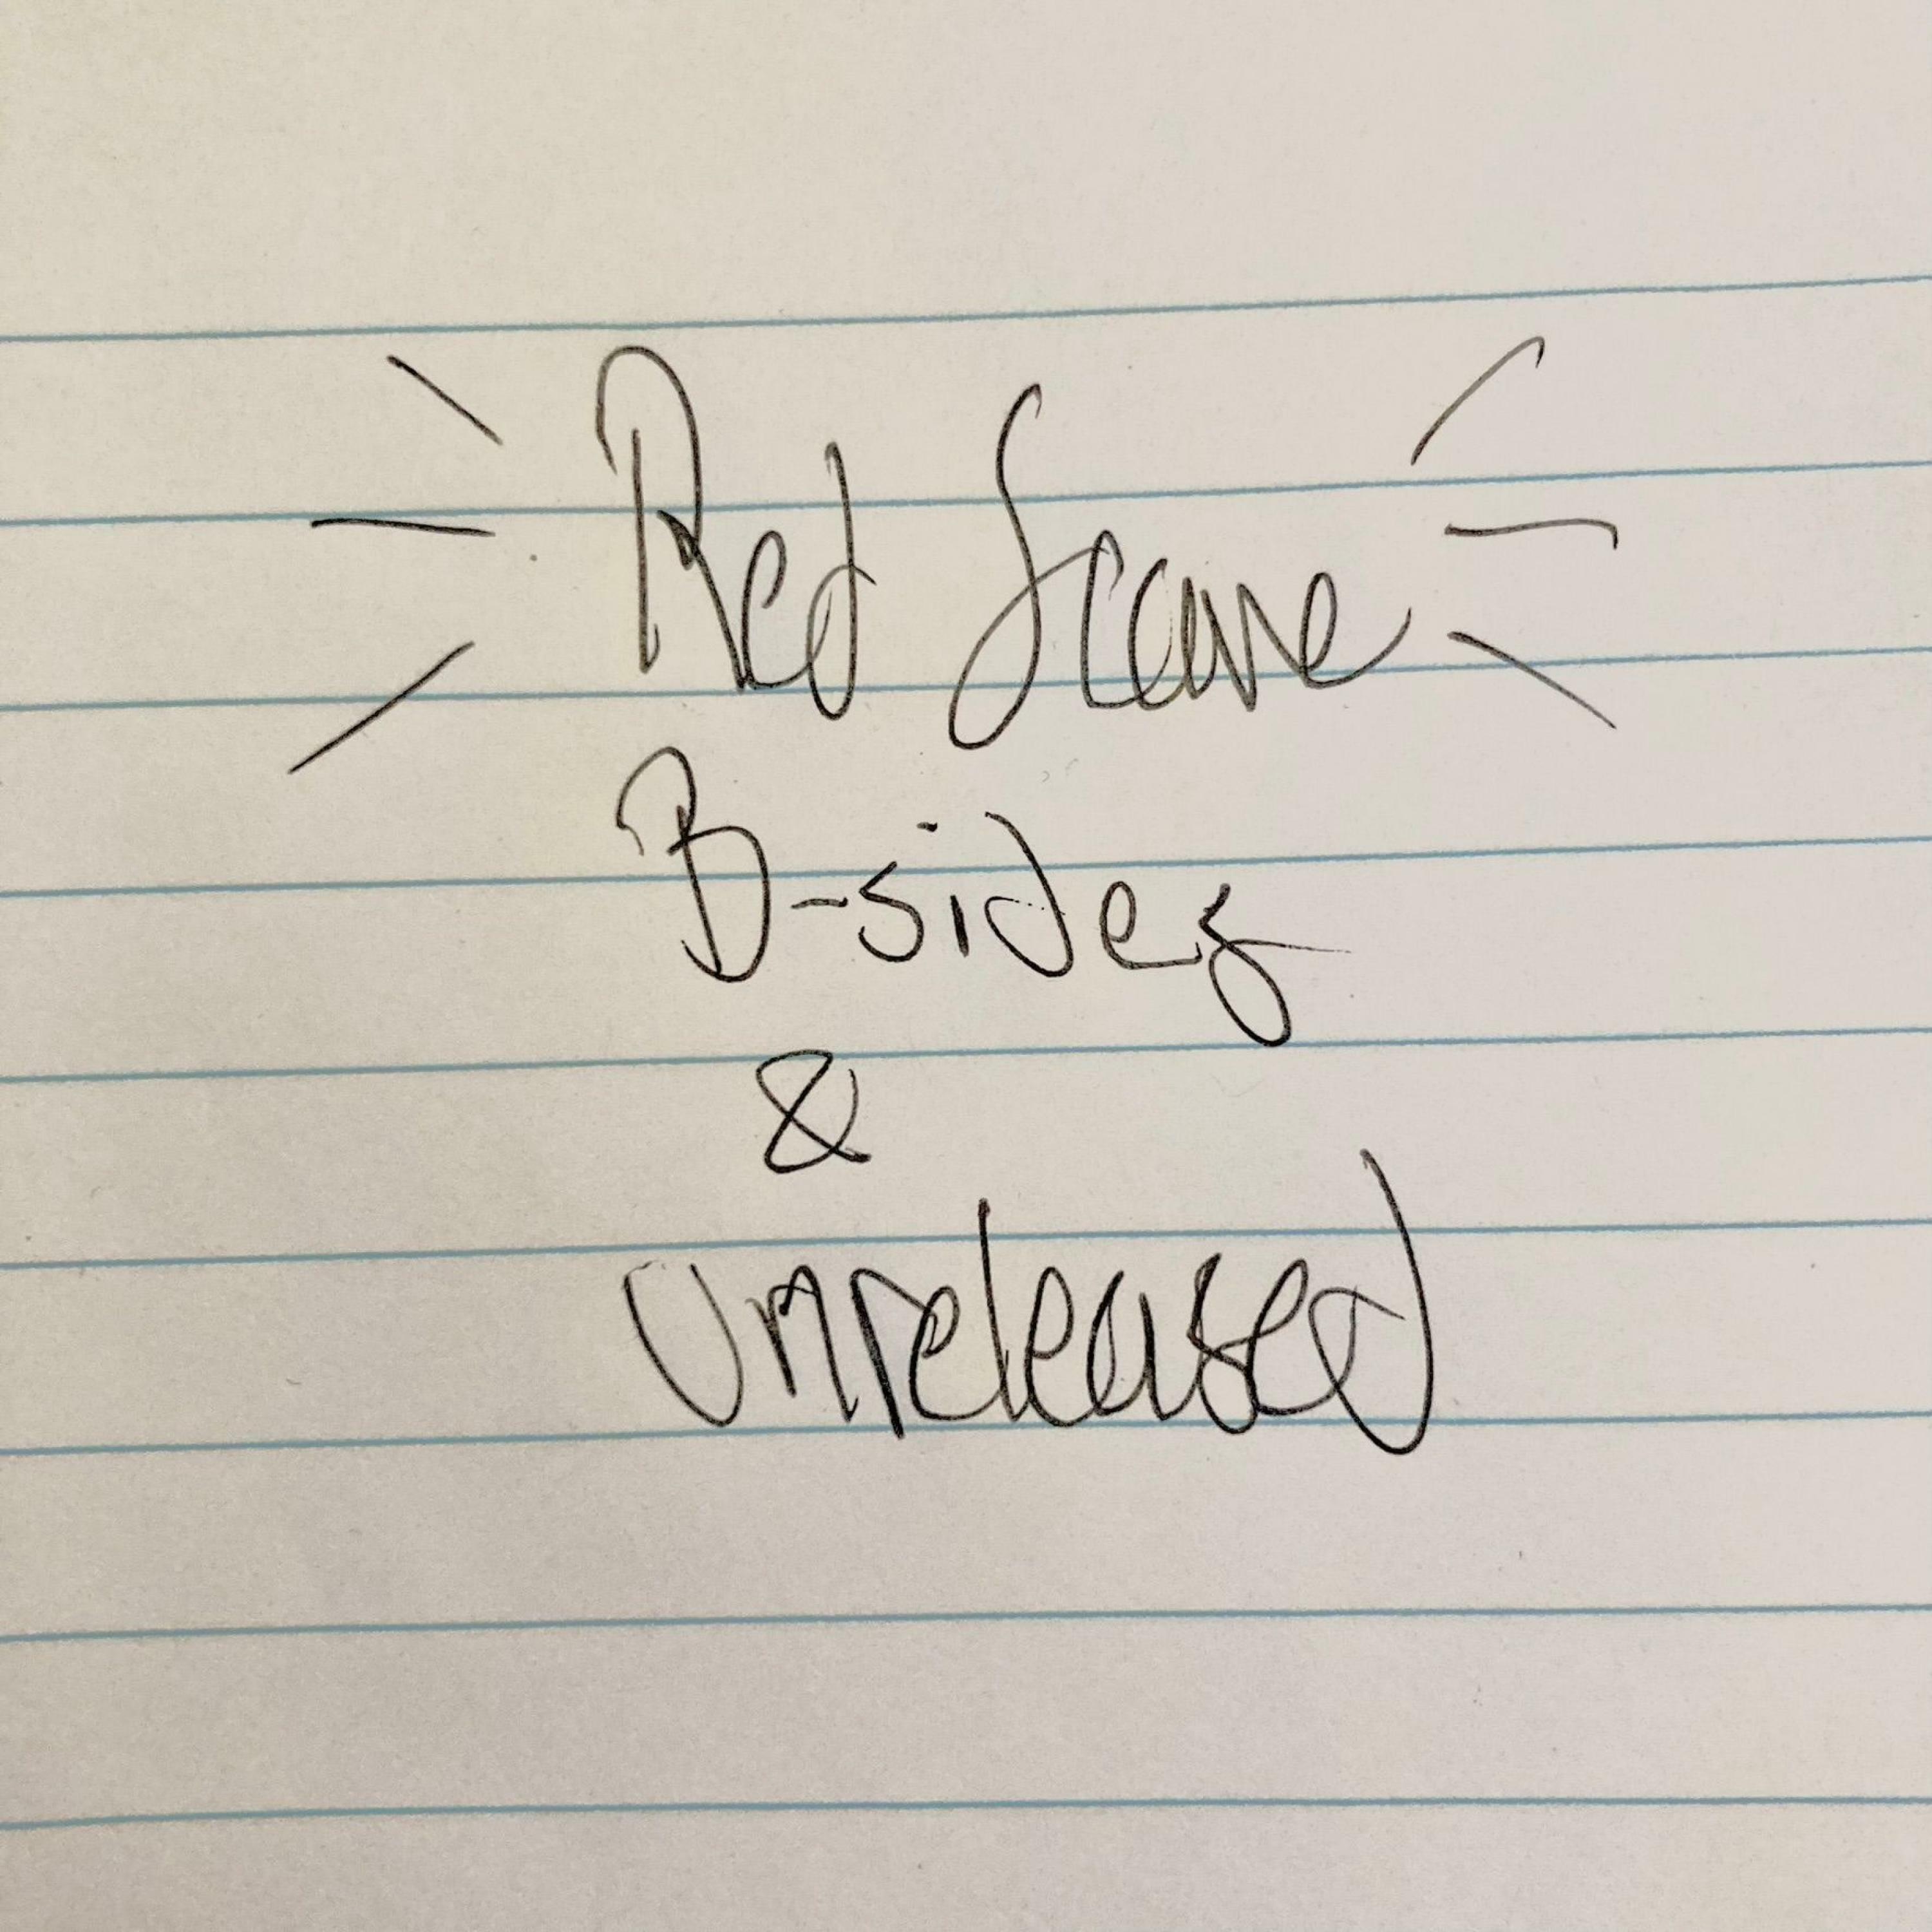 Red Scare
B-sides
&
unreleased